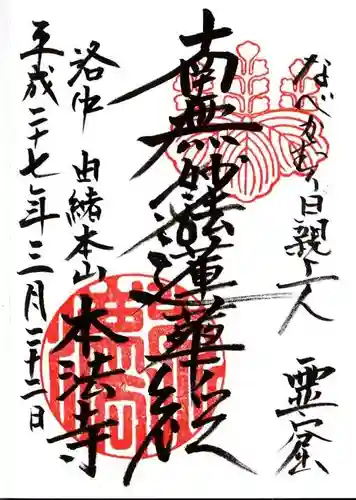 なべかむり日親上人
霊窟
南無妙法蓮華経
洛中 由緒本山
本法寺
平成二十七年三月二十二日